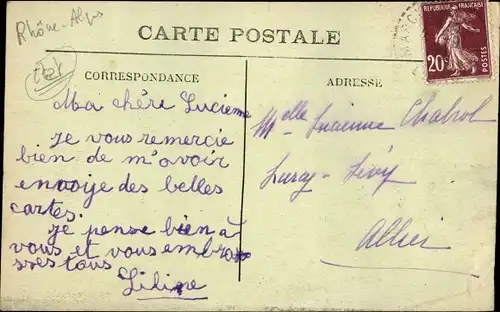 Rhône-Alps
CARTE POSTALE
REPUBLIQUE FRANÇAISE
20c
CORRESPONDANCE
ADRESSE
Ma chère Lucienne
je vous remercie
bien de m'avoir
envoije des belles
cartes.
je pense bien à
vous et vous embra
sses tous
Liline
Melle Lucienne Chabrol
Lurcy-Lévy
Allier